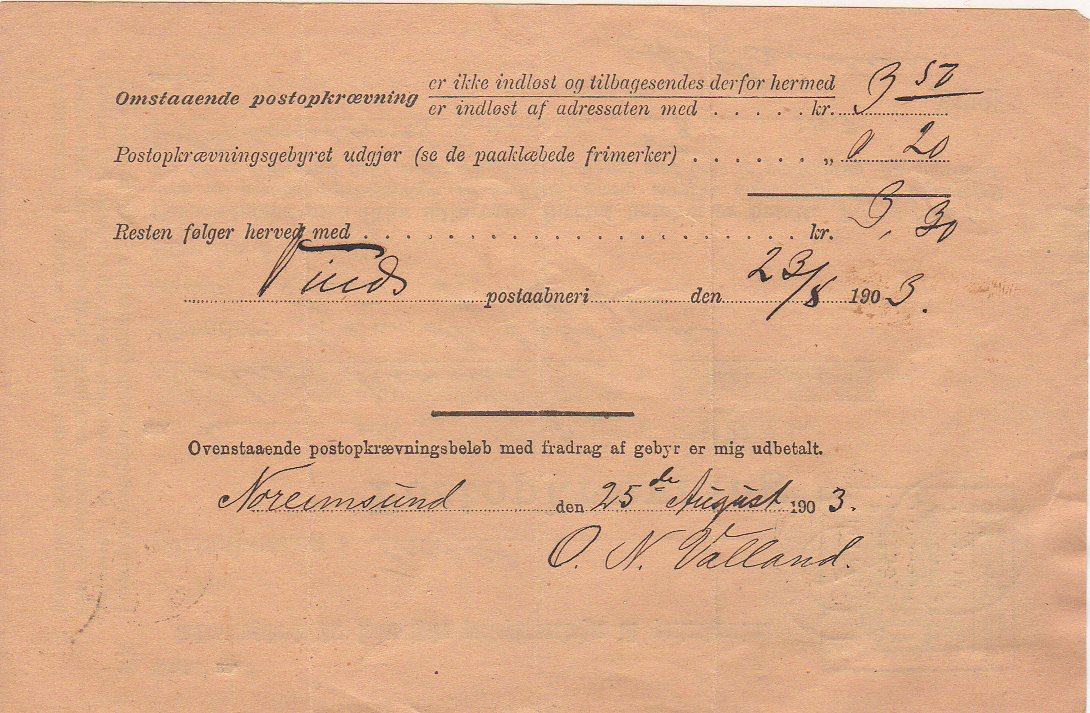 er ikke indløst og tilbagesendes derfor hermed 3 50
Omstaaende postopkrævning
er indløst af adressaten med . . . . . kr.
Postopkrævningsgebyret udgjør (se de paaklæbede frimerker) . . . . . . . „ 0 20
Resten følger herved med . . . . . . . . . . . . . . . . . . . . . . . kr. 3, 30
postaabneri den 23/8 1903.
Ovenstaaende postopkrævningsbeløb med fradrag af gebyr er mig udbetalt.
Noreimsund den 25de August 1903.
O. N. Valland.